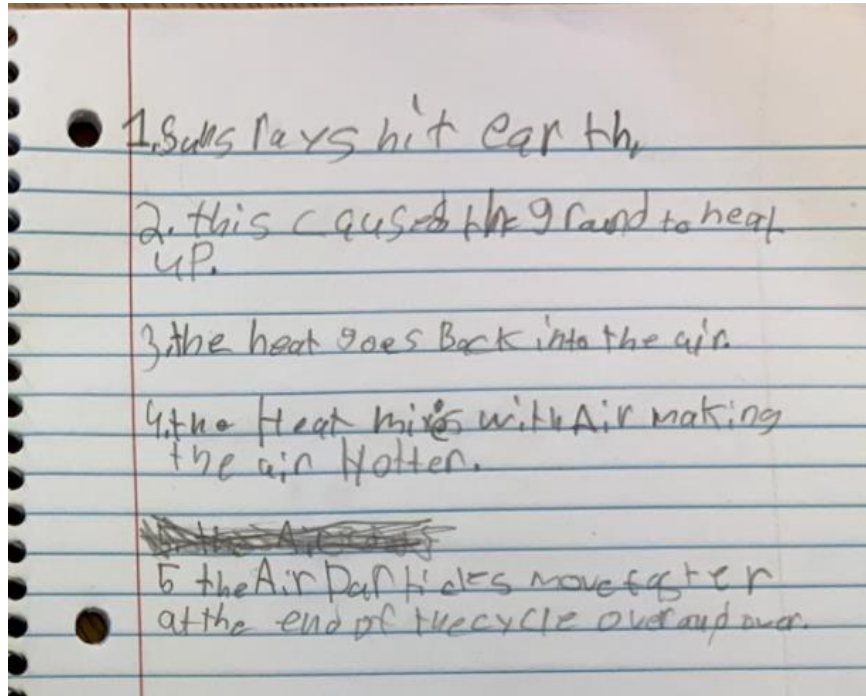 1. Suns rays hit earth,
2. this caused the ground to heat
up.
3. the heat goes Back into the air.
4. the Heat mixes with Air making
the air Hotter.
5 the Air Particles move faster
at the end of the cycle over and over.